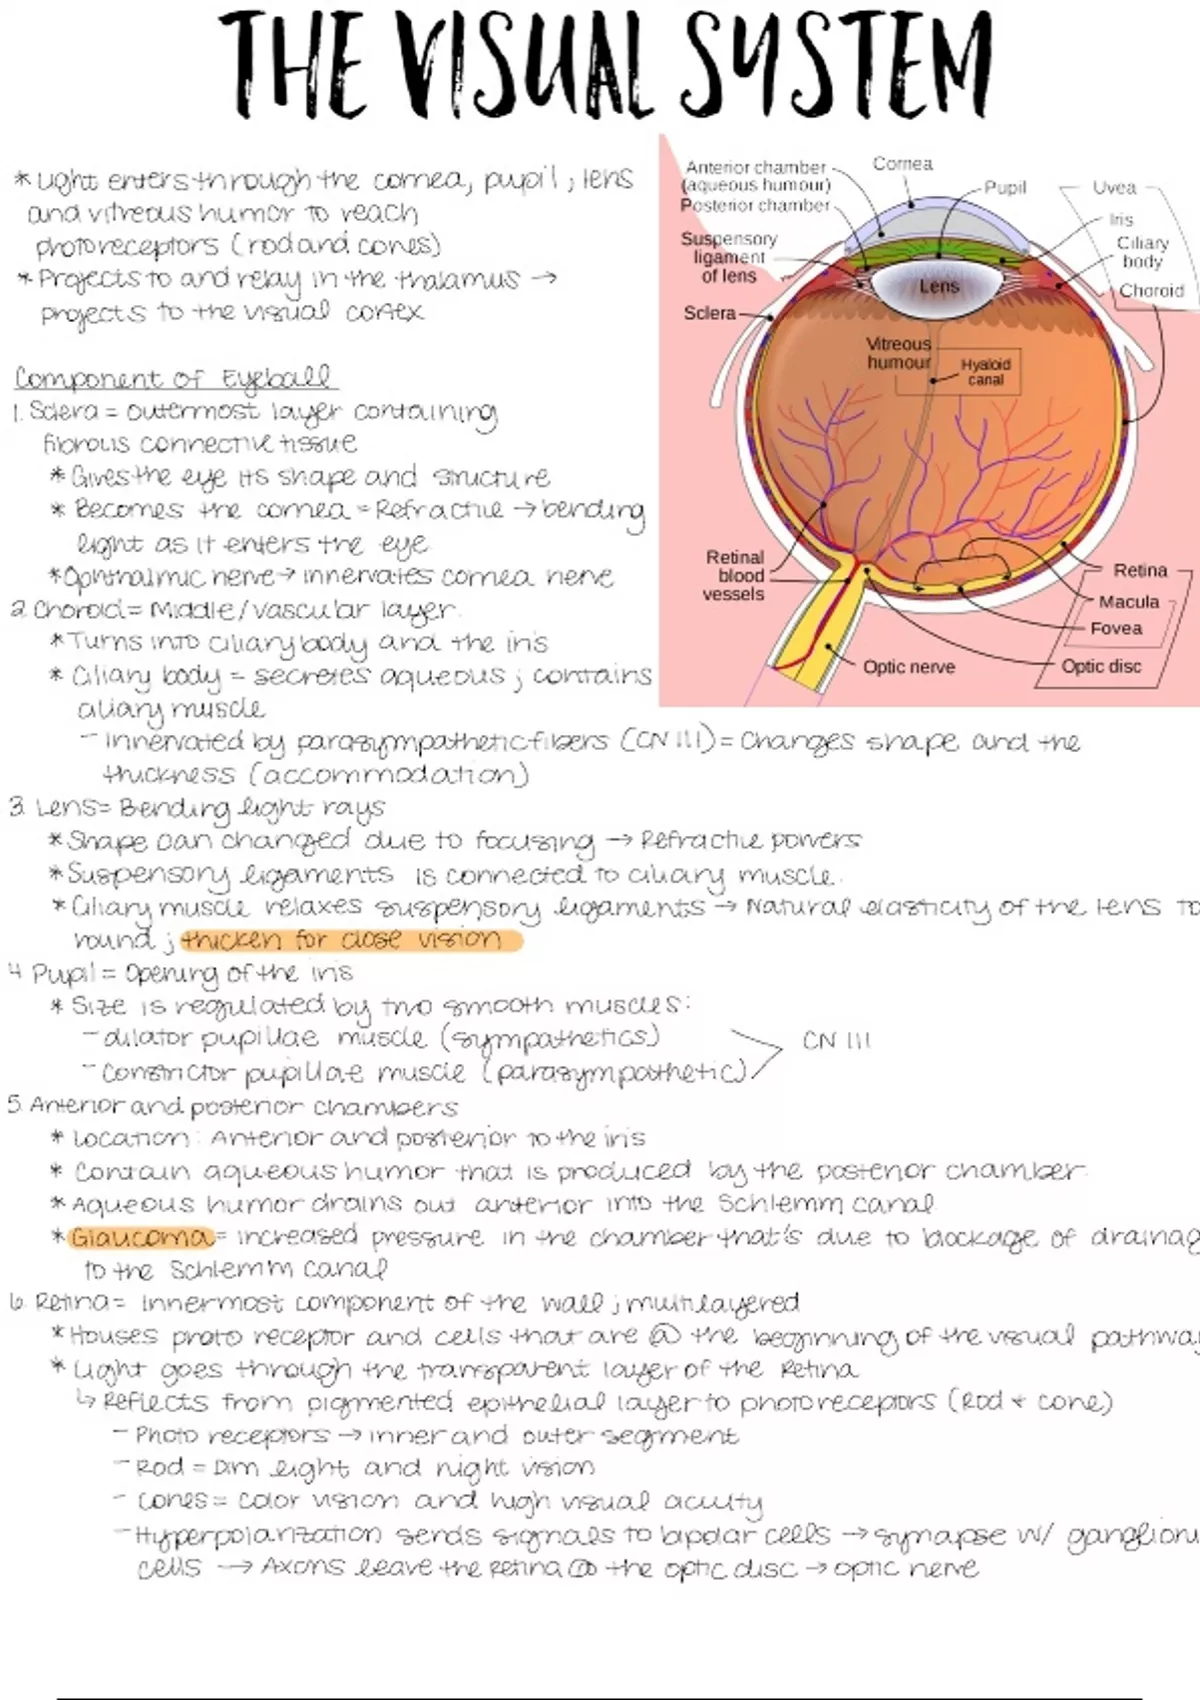 THE VISUAL SYSTEM
* Light enters through the cornea, pupil, lens
and vitreous humor to reach
photoreceptors (rod and cones)
* Projects to and relay in the thalamus →
projects to the visual cortex
Anterior chamber
(aqueous humour)
Posterior chamber
Cornea
Pupil
Uvea
Iris
Ciliary
body
Choroid
Suspensory
ligament
of lens
Lens
Sclera
Vitreous
humour
Hyaloid
canal
Retinal
blood
vessels
Optic nerve
Retina
Macula
Fovea
Optic disc
Component of Eyeball
1. Sclera = outermost layer containing
fibrous connective tissue
* Gives the eye its shape and structure
* Becomes the cornea = Refractive → bending
light as it enters the eye
* Ophthalmic nerve → innervates cornea nerve
2. Choroid = Middle/vascular layer.
* Turns into ciliary body and the iris
* Ciliary body = secretes aqueous ; contains
ciliary muscle
- Innervated by parasympathetic fibers (CN III) = Changes shape and the
thickness (accommodation)
3. Lens = Bending light rays
* Shape can changed due to focusing → Refractive powers
* Suspensory ligaments is connected to ciliary muscle.
* Ciliary muscle relaxes suspensory ligaments → Natural elasticity of the lens to
round ; thicken for close vision
4. Pupil = Opening of the iris
* Size is regulated by two smooth muscles:
- dilator pupillae muscle (sympathetics)
- Constrictor pupillae muscle (parasympathetic)
CN III
5. Anterior and posterior chambers
* Location: Anterior and posterior to the iris
* Contain aqueous humor that is produced by the posterior chamber.
* Aqueous humor drains out anterior into the Schlemm canal
* Glaucoma = increased pressure in the chamber that's due to blockage of drainag
to the Schlemm canal
6. Retina = Innermost component of the wall ; multilayered
* Houses photo receptor and cells that are @ the beginning of the visual pathway
* Light goes through the transparent layer of the Retina
↳ Reflects from pigmented epithelial layer to photoreceptors (Rod + cone)
- Photo receptors → inner and outer segment
- Rod = Dim light and night vision
- Cones = Color vision and high visual acuity
- Hyperpolarization sends signals to bipolar cells → synapse w/ ganglion
cells → Axons leave the Retina @ the optic disc → optic nerve